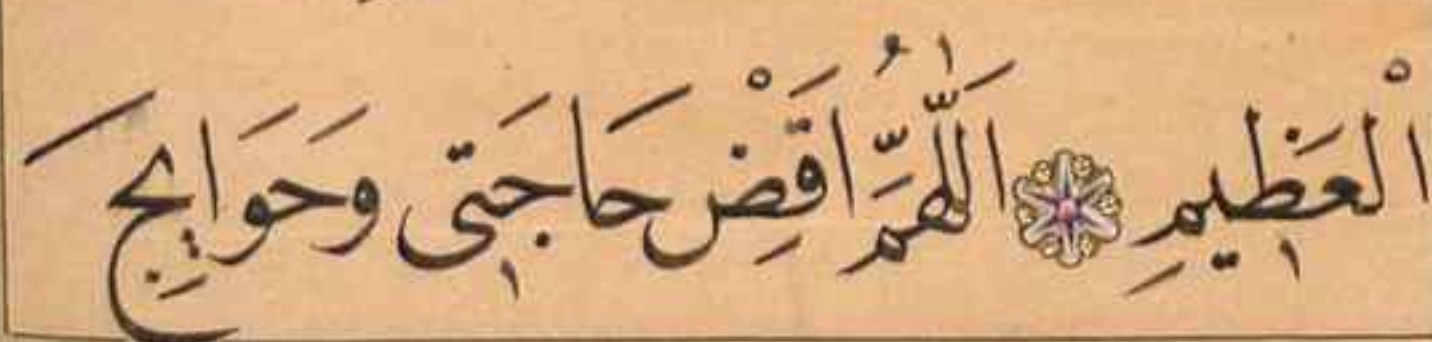 الْعَظِيمِ اَللّٰهُمَّ اَقْضِ حَاجَتِى وَحَوَايِجَ